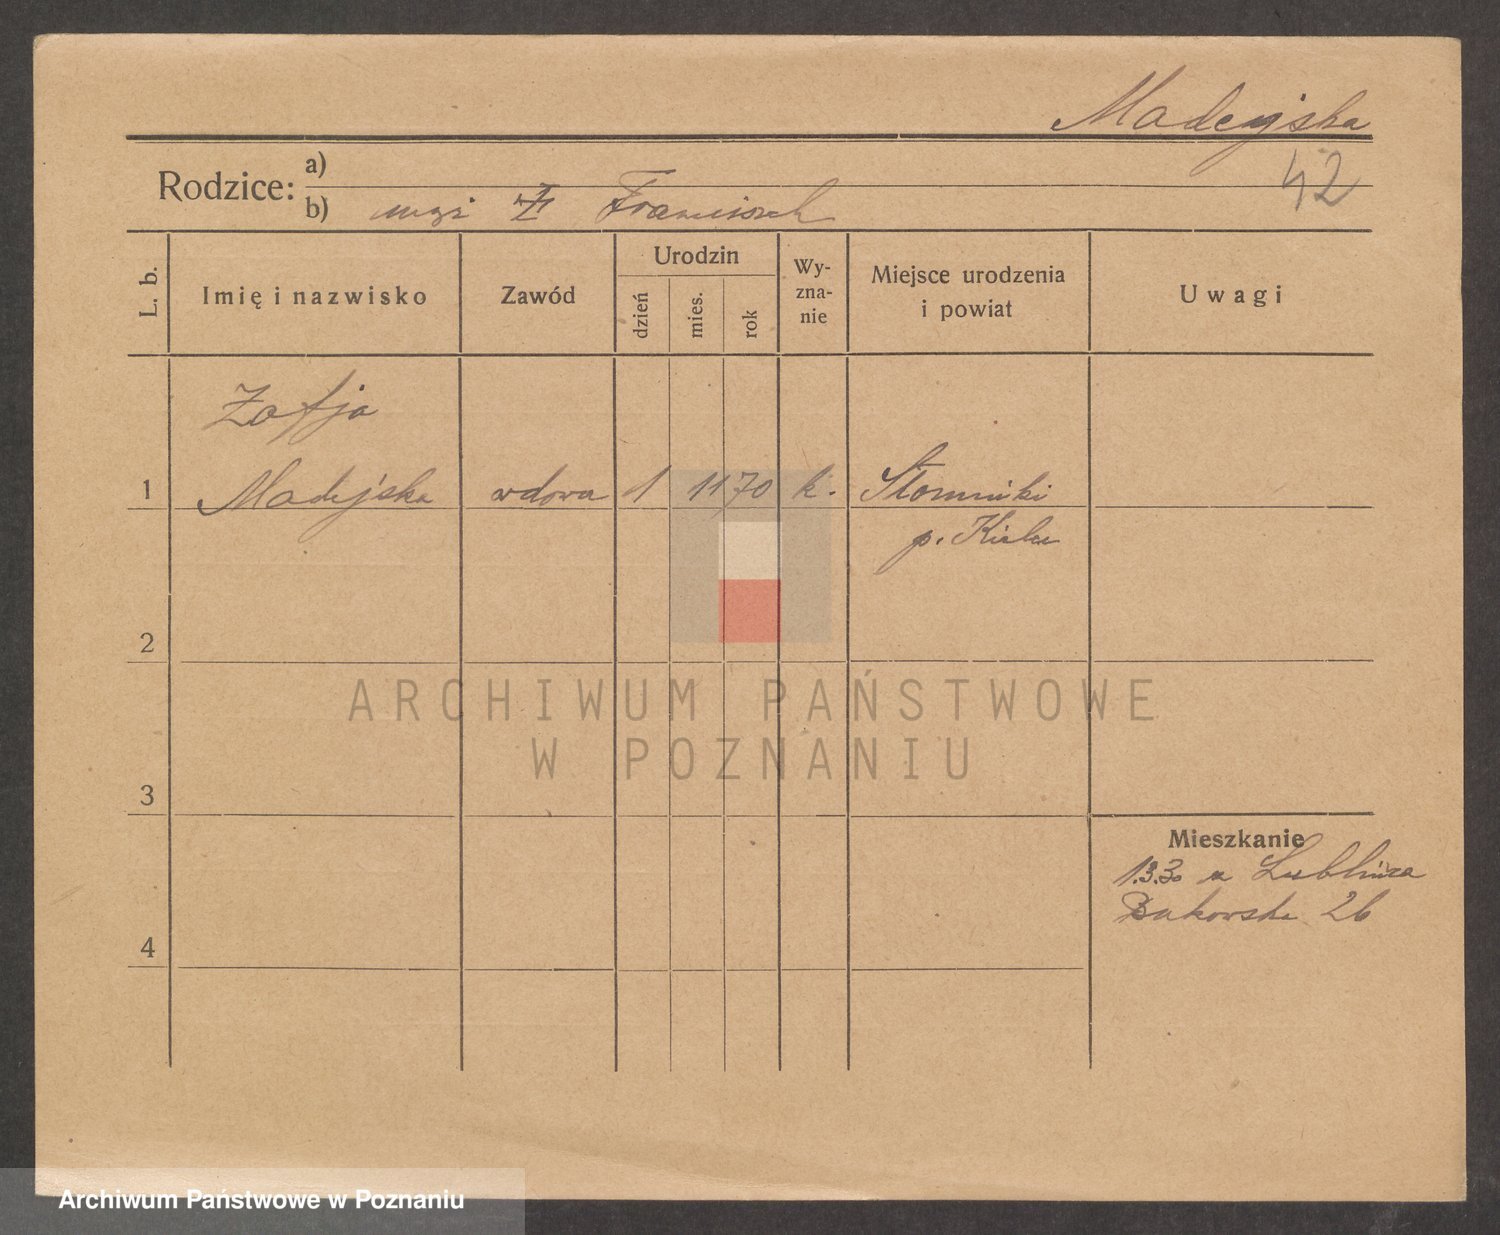 Madejska
42
Rodzice:
a)
b) mąż Franciszek
L. b.
Imię i nazwisko
Zawód
Urodzin
dzień
mies.
rok
Wy-
zna-
nie
Miejsce urodzenia
i powiat
Uwagi
Zofja
1 Madejska wdowa 1 11 70 k. Słomniki
p. Kielce
2
3
4
Mieszkanie
1.3.30 z Lublińca
Bukowska 26
ARCHIWUM PAŃSTWOWE
W POZNANIU
Archiwum Państwowe w Poznaniu